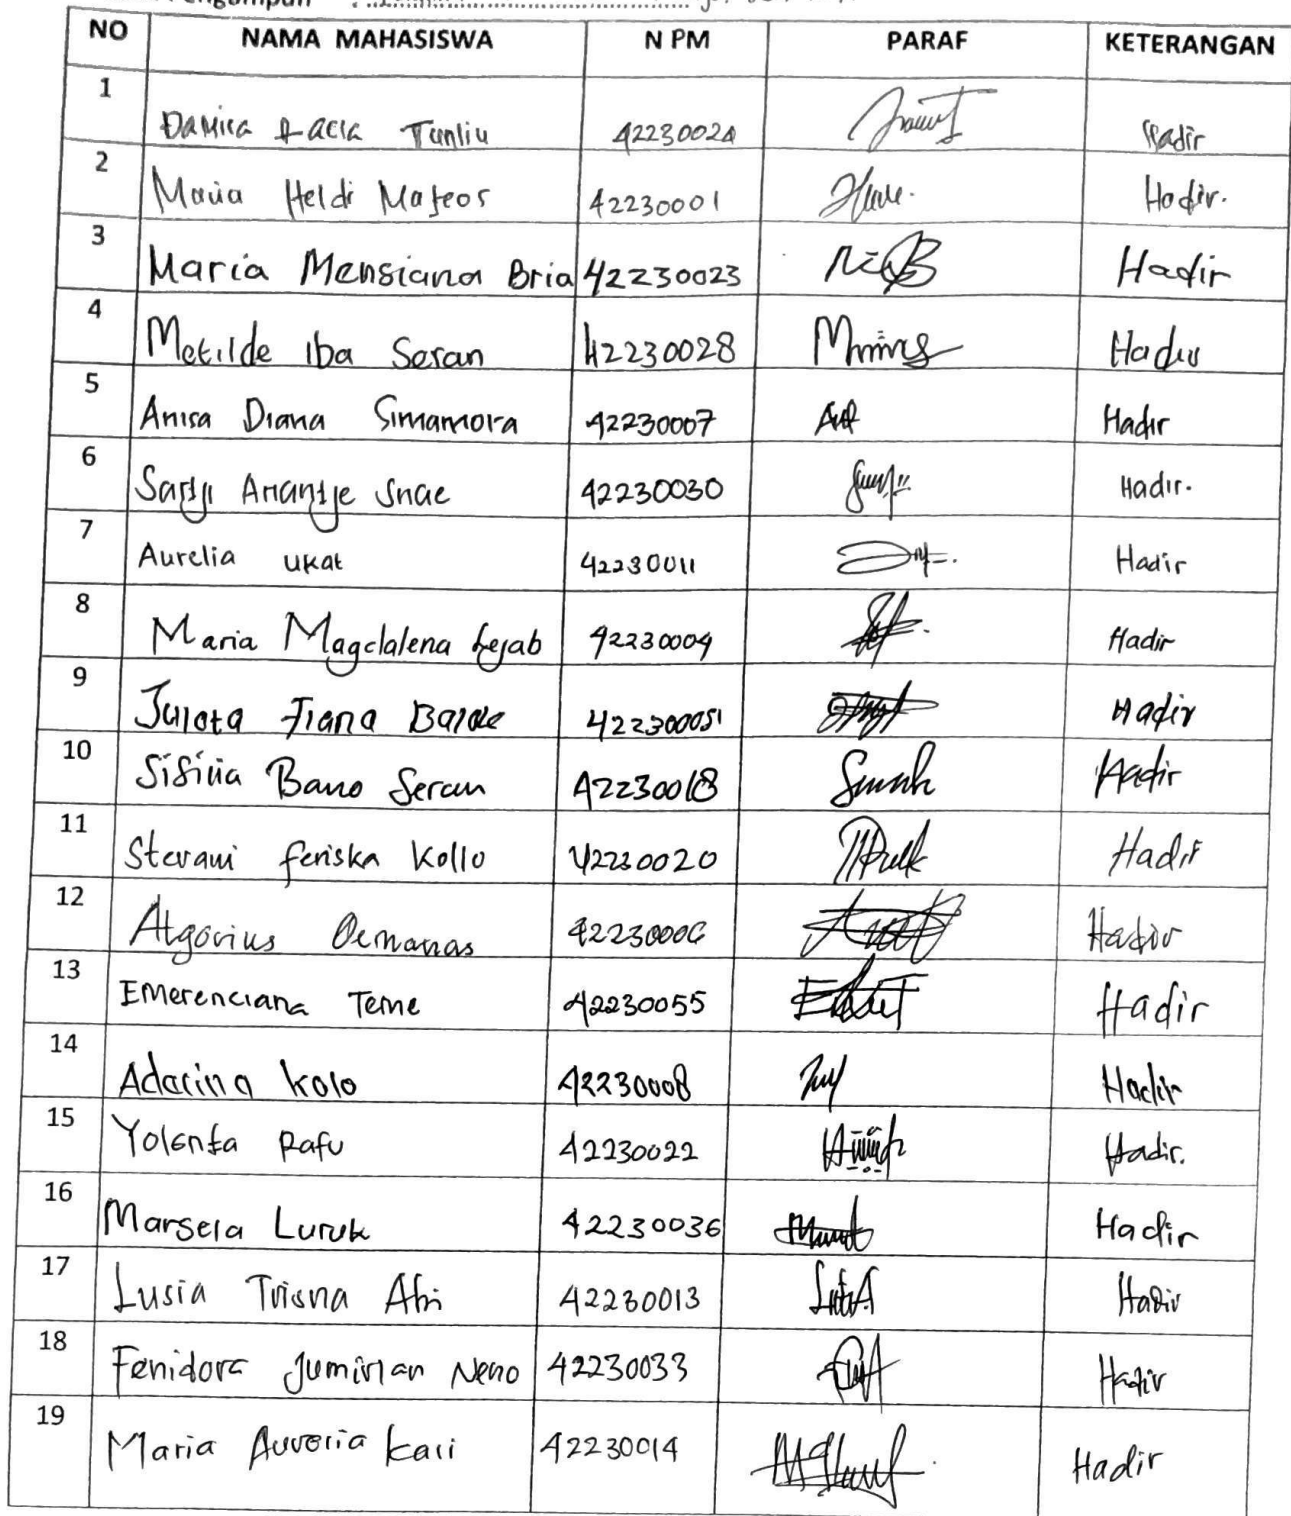 NO NAMA MAHASISWA N PM PARAF KETERANGAN
1 Tunliu 42230024 Hadir
2 Maria Heldi Mateos 42230001 Hadir.
3 Maria Mensiana Bria 42230023 Hadir
4 Metilde Iba Seran 42230028 Hadir
5 Anisa Diana Simamora 42230007 Hadir
6 Snae 42230030 Hadir.
7 Aurelia Ukat 42230011 Hadir
8 Maria Magdalena Lejab 42230004 Hadir
9 Fiana 422300051 Hadir
10 Seran 42230018 Hadir
11 Stevani feriska Kollo 42230020 Hadir
12 Hadir
13 Emerenciana Teme 42230055 Hadir
14 Adarina Kolo 42230008 Hadir
15 Yolenta Rafu 42230022 Hadir.
16 Marsela Luruk 42230036 Hadir
17 Lusia Trisna Afri 42230013 Hadir
18 Fenidora Jumirlan Neno 42230033 Hadir
19 Maria 42230014 Hadir